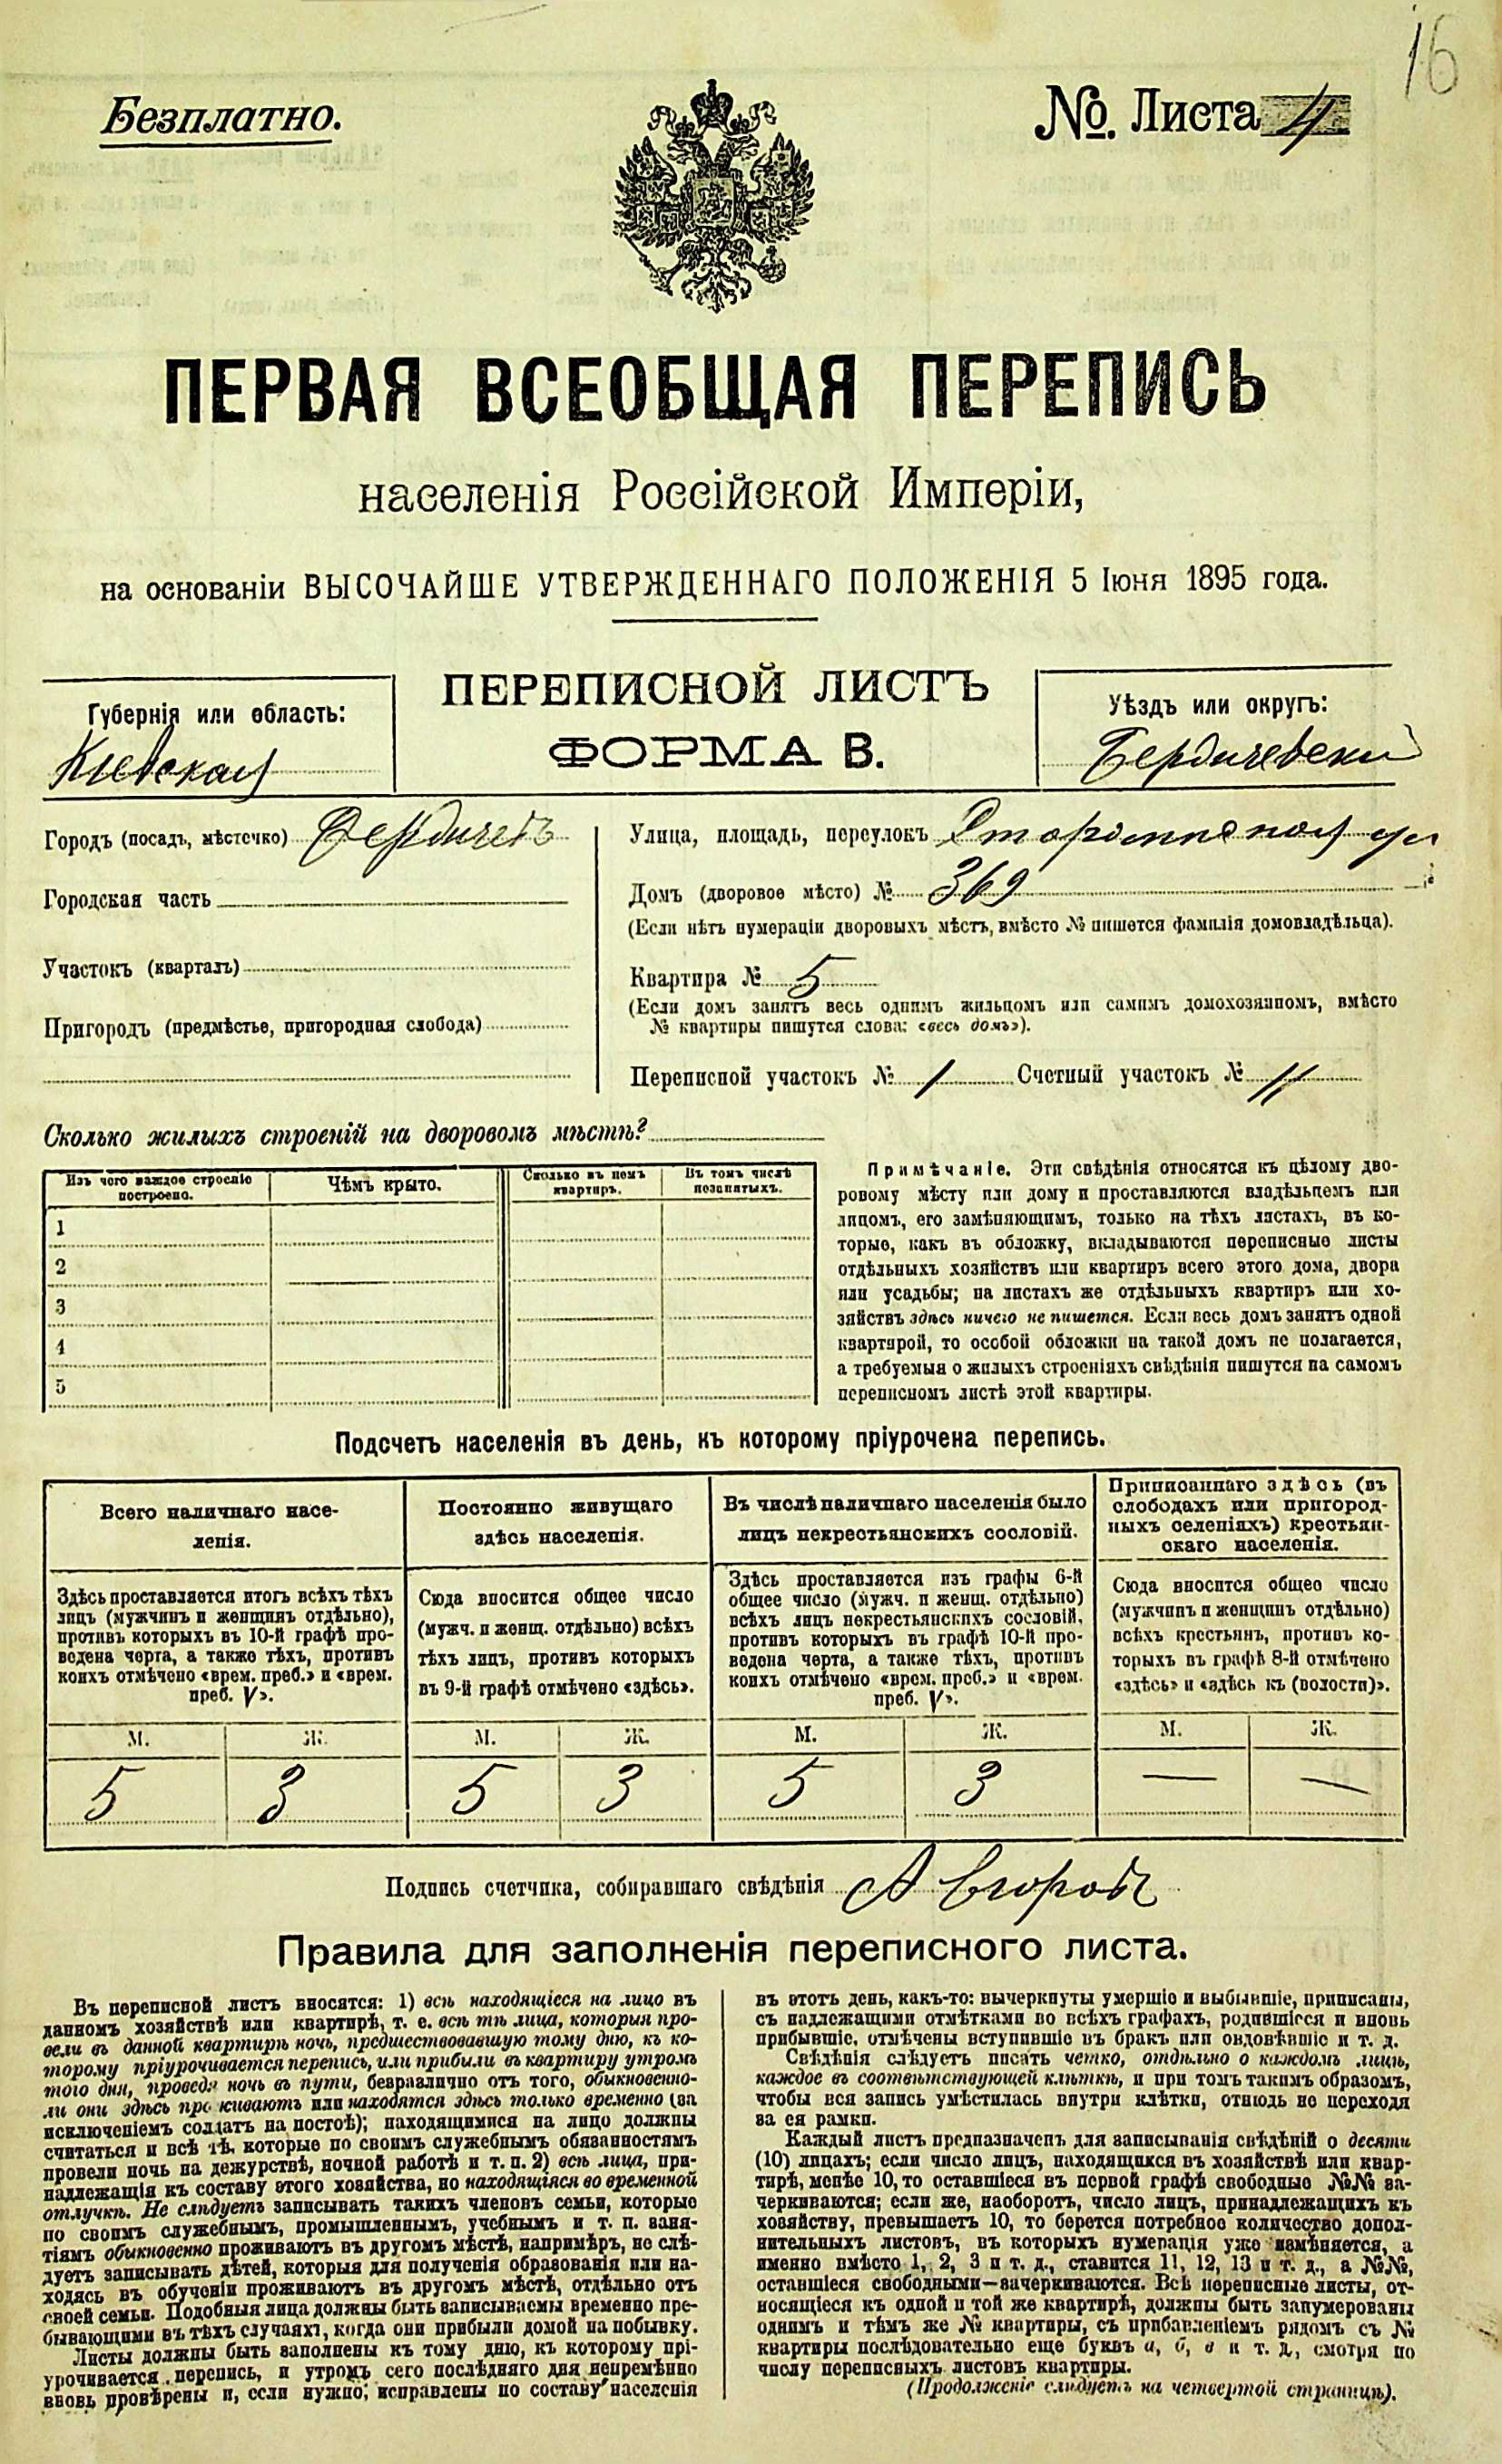 16
Безплатно.
№. Листа 4
ПЕРВАЯ ВСЕОБЩАЯ ПЕРЕПИСЬ
населенія Россійской Имперіи,
на основаніи ВЫСОЧАЙШЕ УТВЕРЖДЕННАГО ПОЛОЖЕНІЯ 5 Іюня 1895 года.
Губернія или область:
Кіевская
ПЕРЕПИСНОЙ ЛИСТЪ
ФОРМА В.
Уѣздъ или округъ:
Бердичевскій
Городъ (посадъ, мѣстечко) Бердичевъ
Городская часть
Участокъ (кварталъ)
Пригородъ (предмѣстье, пригородная слобода)
Улица, площадь, переулокъ ул
Домъ (дворовое мѣсто) № 369
(Если нѣтъ нумераціи дворовыхъ мѣстъ, вмѣсто № пишется фамилія домовладѣльца).
Квартира № 5
(Если домъ занятъ весь однимъ жильцомъ или самимъ домохозяиномъ, вмѣсто
№ квартиры пишутся слова: «весь домъ»).
Переписной участокъ № 1 Счетный участокъ № 11
Сколько жилыхъ строеній на дворовомъ мѣстѣ?
Изъ чего каждое строеніе
построено.
Чѣмъ крыто.
Сколько въ немъ
квартиръ.
Въ томъ числѣ
незанятыхъ.
1
2
3
4
5
Примѣчаніе. Эти свѣдѣнія относятся къ цѣлому дво-
ровому мѣсту или дому и проставляются владѣльцемъ или
лицомъ, его замѣняющимъ, только на тѣхъ листахъ, въ ко-
торые, какъ въ обложку, вкладываются переписные листы
отдѣльныхъ хозяйствъ или квартиръ всего этого дома, двора
или усадьбы; на листахъ же отдѣльныхъ квартиръ или хо-
зяйствъ здѣсь ничего не пишется. Если весь домъ занятъ одной
квартирой, то особой обложки на такой домъ не полагается,
а требуемыя о жилыхъ строеніяхъ свѣдѣнія пишутся на самомъ
переписномъ листѣ этой квартиры.
Подсчетъ населенія въ день, къ которому пріурочена перепись.
Всего наличнаго насе-
ленія.
Здѣсь проставляется итогъ всѣхъ тѣхъ
лицъ (мужчинъ и женщинъ отдѣльно),
противъ которыхъ въ 10-й графѣ про-
ведена черта, а также тѣхъ, противъ
коихъ отмѣчено «врем. преб.» и «врем.
преб. V».
М. Ж.
5 3
Постоянно живущаго
здѣсь населенія.
Сюда вносится общее число
(мужч. и женщ. отдѣльно) всѣхъ
тѣхъ лицъ, противъ которыхъ
въ 9-й графѣ отмѣчено «здѣсь».
М. Ж.
5 3
Въ числѣ наличнаго населенія было
лицъ некрестьянскихъ сословій.
Здѣсь проставляется изъ графы 6-й
общее число (мужч. и женщ. отдѣльно)
всѣхъ лицъ некрестьянскихъ сословій,
противъ которыхъ въ графѣ 10-й про-
ведена черта, а также тѣхъ, противъ
коихъ отмѣчено «врем. преб.» и «врем.
преб. V».
М. Ж.
5 3
Приписаннаго здѣсь (въ
слободахъ или пригород-
ныхъ селеніяхъ) крестьян-
скаго населенія.
Сюда вносится общее число
(мужчинъ и женщинъ отдѣльно)
всѣхъ крестьянъ, противъ ко-
торыхъ въ графѣ 8-й отмѣчено
«здѣсь» и «здѣсь къ (волости)».
М. Ж.
— —
Подпись счетчика, собиравшаго свѣдѣнія А
Правила для заполненія переписного листа.
Въ переписной листъ вносятся: 1) всѣ находящіеся на лицо въ
данномъ хозяйствѣ или квартирѣ, т. е. всѣ тѣ лица, которыя про-
вели въ данной квартирѣ ночь, предшествовавшую тому дню, къ ко-
торому пріурочивается перепись, или прибыли въ квартиру утромъ
того дня, проведя ночь въ пути, безразлично отъ того, обыкновенно-
ли они здѣсь проживаютъ или находятся здѣсь только временно (за
исключеніемъ солдатъ на постоѣ); находящимися на лицо должны
считаться и всѣ тѣ, которые по своимъ служебнымъ обязанностямъ
провели ночь на дежурствѣ, ночной работѣ и т. п. 2) всѣ лица, при-
надлежащія къ составу этого хозяйства, но находящіяся во временной
отлучкѣ. Не слѣдуетъ записывать такихъ членовъ семьи, которые
по своимъ служебнымъ, промышленнымъ, учебнымъ и т. п. заня-
тіямъ обыкновенно проживаютъ въ другомъ мѣстѣ, напримѣръ, не слѣ-
дуетъ записывать дѣтей, которыя для полученія образованія или на-
ходясь въ обученіи проживаютъ въ другомъ мѣстѣ, отдѣльно отъ
своей семьи. Подобныя лица должны быть записываемы временно пре-
бывающими въ тѣхъ случаяхъ, когда они прибыли домой на побывку.
Листы должны быть заполнены къ тому дню, къ которому прі-
урочивается перепись, и утромъ сего послѣдняго дня непремѣнно
вновь провѣрены и, если нужно, исправлены по составу населенія
въ этотъ день, какъ-то: вычеркнуты умершіе и выбывшіе, приписаны,
съ надлежащими отмѣтками во всѣхъ графахъ, родившіеся и вновь
прибывшіе, отмѣчены вступившіе въ бракъ или овдовѣвшіе и т. д.
Свѣдѣнія слѣдуетъ писать четко, отдѣльно о каждомъ лицѣ,
каждое въ соотвѣтствующей клѣткѣ, и при томъ такимъ образомъ,
чтобы вся запись умѣстилась внутри клѣтки, отнюдь не переходя
за ея рамки.
Каждый листъ предназначенъ для записыванія свѣдѣній о десяти
(10) лицахъ; если число лицъ, находящихся въ хозяйствѣ или квар-
тирѣ, менѣе 10, то оставшіеся въ первой графѣ свободные №№ за-
черкиваются; если же, наоборотъ, число лицъ, принадлежащихъ къ
хозяйству, превышаетъ 10, то берется потребное количество допол-
нительныхъ листовъ, въ которыхъ нумерація уже измѣняется, а
именно вмѣсто 1, 2, 3 и т. д., ставится 11, 12, 13 и т. д., а №№,
оставшіеся свободными—зачеркиваются. Всѣ переписные листы, от-
носящіеся къ одной и той же квартирѣ, должны быть занумерованы
однимъ и тѣмъ же № квартиры, съ прибавленіемъ рядомъ съ №
квартиры послѣдовательно еще буквъ а, б, в и т. д., смотря по
числу переписныхъ листовъ квартиры.
(Продолженіе слѣдуетъ на четвертой страницѣ).